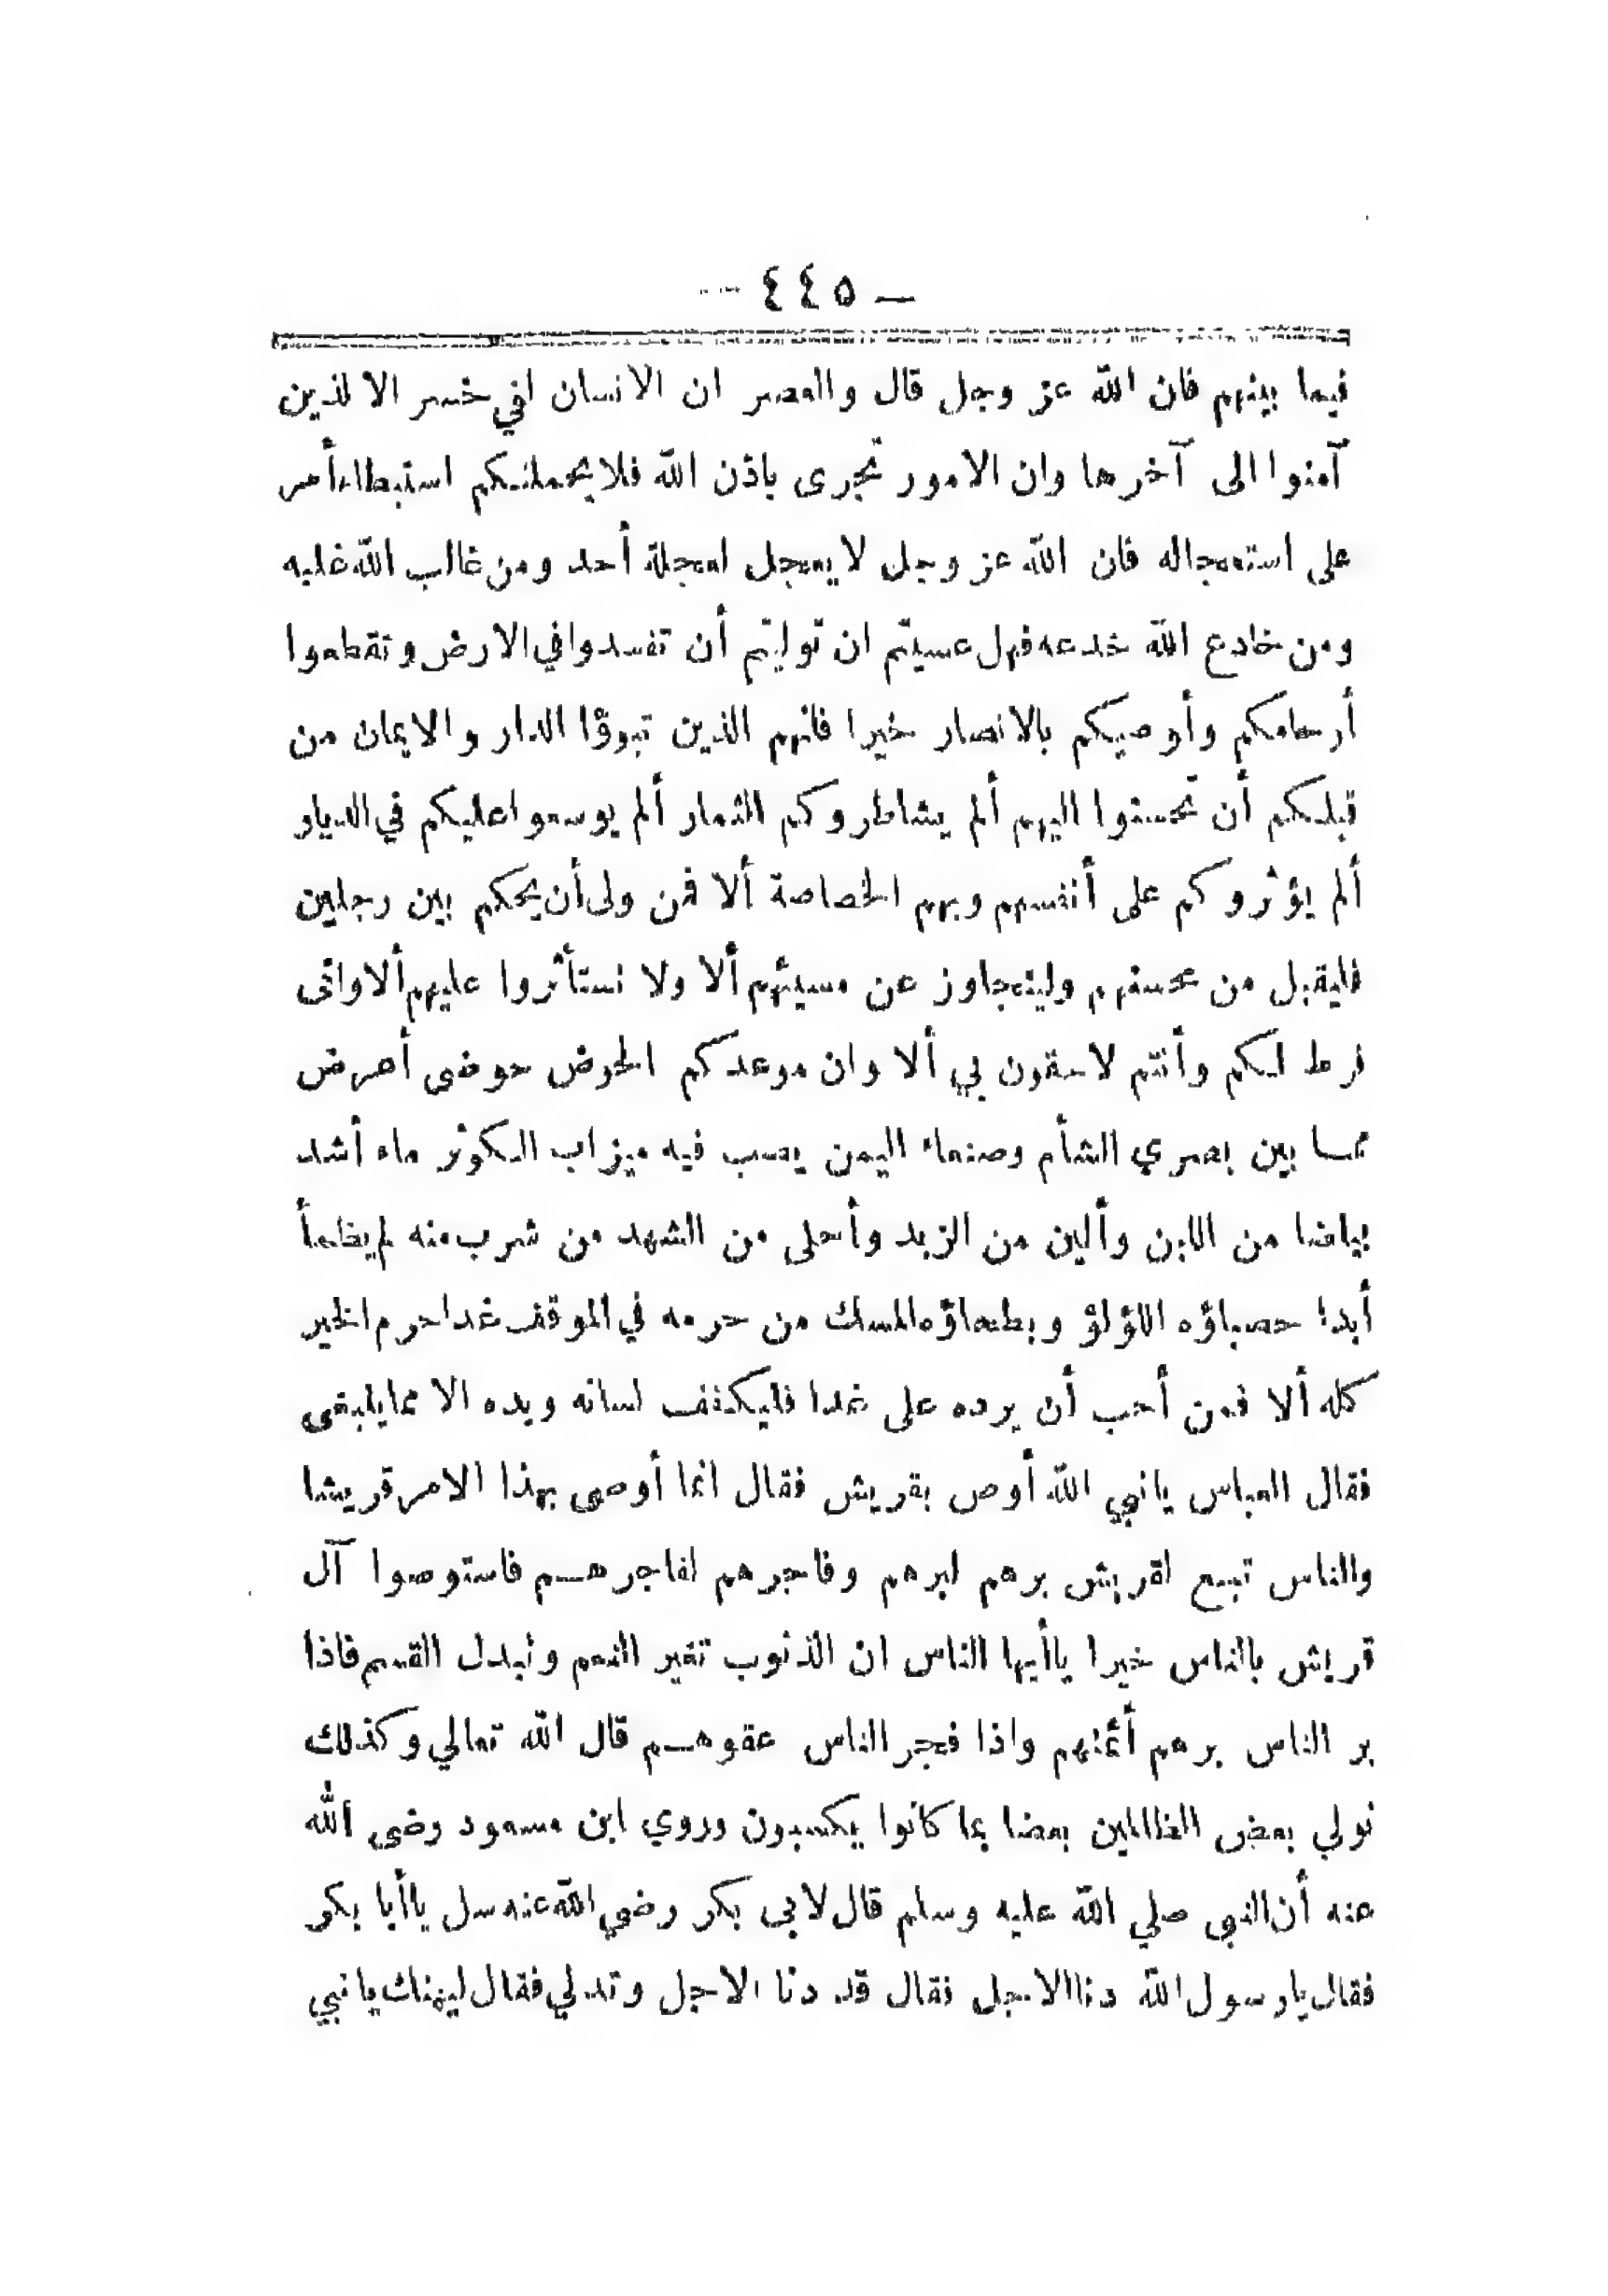 — ٤٤٥ —
فيما بينهم فان الله عز وجل قال والعصر ان الانسان لفي خسر الا لذين
آمنوا الى آخرها وان الامور تجرى باذن الله فلا يحملنكم استبطاء أمر
على استعجاله فان الله عز وجل لا يعجل لعجلة أحد ومن غالب الله غلبه
ومن خادع الله خدعه فهل عسيتم ان توليتم أن تفسدوا في الارض وتقطعوا
أرحامكم وأوصيكم بالانصار خيرا فانهم الذين تبوؤا الدار والايمان من
قبلكم أن تحسنوا اليهم ألم يشاطروكم الثمار ألم يوسعوا عليكم في الديار
ألم يؤثروكم على أنفسهم وبهم الخصاصة ألا فمن ولى أن يحكم بين رجلين
فليقبل من محسنهم وليتجاوز عن مسيئهم ألا ولا تستأثروا عليهم ألا واني
فرط لكم وأنتم لاحقون بي ألا وان موعدكم الحوض حوضى أعرض
مما بين بصري الشأم وصنعاء اليمن يصب فيه ميزاب الكوثر ماء أشد
بياضا من اللبن وألين من الزبد وأحلى من الشهد من شرب منه لم يظمأ
أبدا حصباؤه اللؤلؤ وبطحاؤه المسك من حرمه في الموقف غدا حرم الخير
كله ألا فمن أحب أن يرده على غدا فليكفف لسانه ويده الا مما ينبغى
فقال العباس يا نبي الله أوص بقريش فقال انما أوصى بهذا الامر قريشا
والناس تبع لقريش برهم لبرهم وفاجرهم لفاجرهم فاستوصوا آل
قريش بالناس خيرا يا أيها الناس ان الذنوب تغير النعم وتبدل القسم فاذا
بر الناس برهم أئمتهم واذا فجر الناس عقوهم قال الله تعالي وكذلك
نولي بعض الظالمين بعضا بما كانوا يكسبون وروي ابن مسعود رضى الله
عنه أن النبى صلي الله عليه وسلم قال لابى بكر رضي الله عنه سل يا أبا بكر
فقال يا رسول الله دنا الاجل فقال قد دنا الاجل وتدلي فقال ليهنك يا نبي